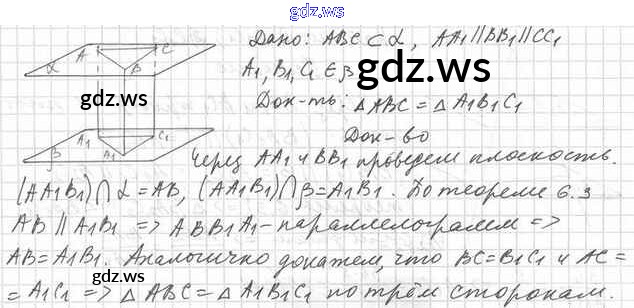 gdz.ws
Дано: ABC ⊂ α, AA1 || BB1 || CC1
A1, B1, C1 ∈ β
gdz.ws
Док-ть: ΔABC = ΔA1B1C1
Док-во
A C B α
gdz.ws
A1 C1 A1 β
Через AA1 и BB1 проведем плоскость.
(AA1B1) ∩ α = AB, (AA1B1) ∩ β = A1B1. По теореме 6.3
AB || A1B1 => ABB1A1 - параллелограмм =>
AB = A1B1. Аналогично докажем, что BC = B1C1 и AC =
= A1C1 => ΔABC = ΔA1B1C1 по трём сторонам.
gdz.ws
gdz.ws